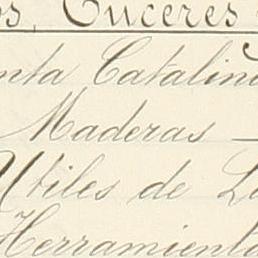 os, Enceres
nta Catalina
Maderas —
Utiles de La
Herramienta